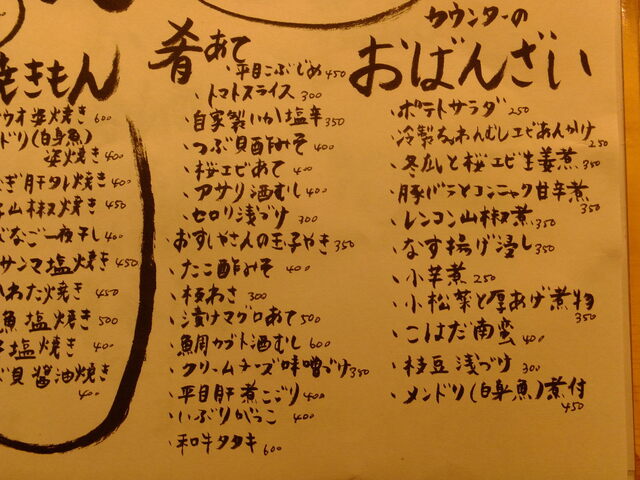 カウンターの
おばんざい
・ポテトサラダ 250
・冷製ちゃわんむしエビあんかけ 250
・冬瓜と桜エビ生姜煮 350
・豚バラとコンニャク甘辛煮 350
・レンコン山椒煮 350
・なす揚げ浸し 350
・小芋煮 250
・小松菜と厚あげ煮物 350
・こはだ南蛮 400
・枝豆浅づけ 300
・メンドリ(白身魚)煮付 450
肴あて
・平目こぶじめ 450
・トマトスライス 300
・自家製いか塩辛 350
・つぶ貝酢みそ 400
・桜エビあて 400
・アサリ酒むし 400
・セロリ浅づけ 300
・おすしやさんの玉子やき 350
・たこ酢みそ 400
・板わさ 300
・漬けマグロあて 500
・鯛カブト酒むし 600
・クリームチーズ味噌づけ 350
・平目肝煮こごり 400
・いぶりがっこ 400
・和牛タタキ 600
焼きもん
ウオ姿焼き 600
ドリ(白身魚)
姿焼き 400
ぎ肝タレ焼き 400
山椒焼き 450
なご一夜干し 400
サンマ塩焼き 450
わた焼き 450
魚塩焼き 500
塩焼き 400
貝醤油焼き 400